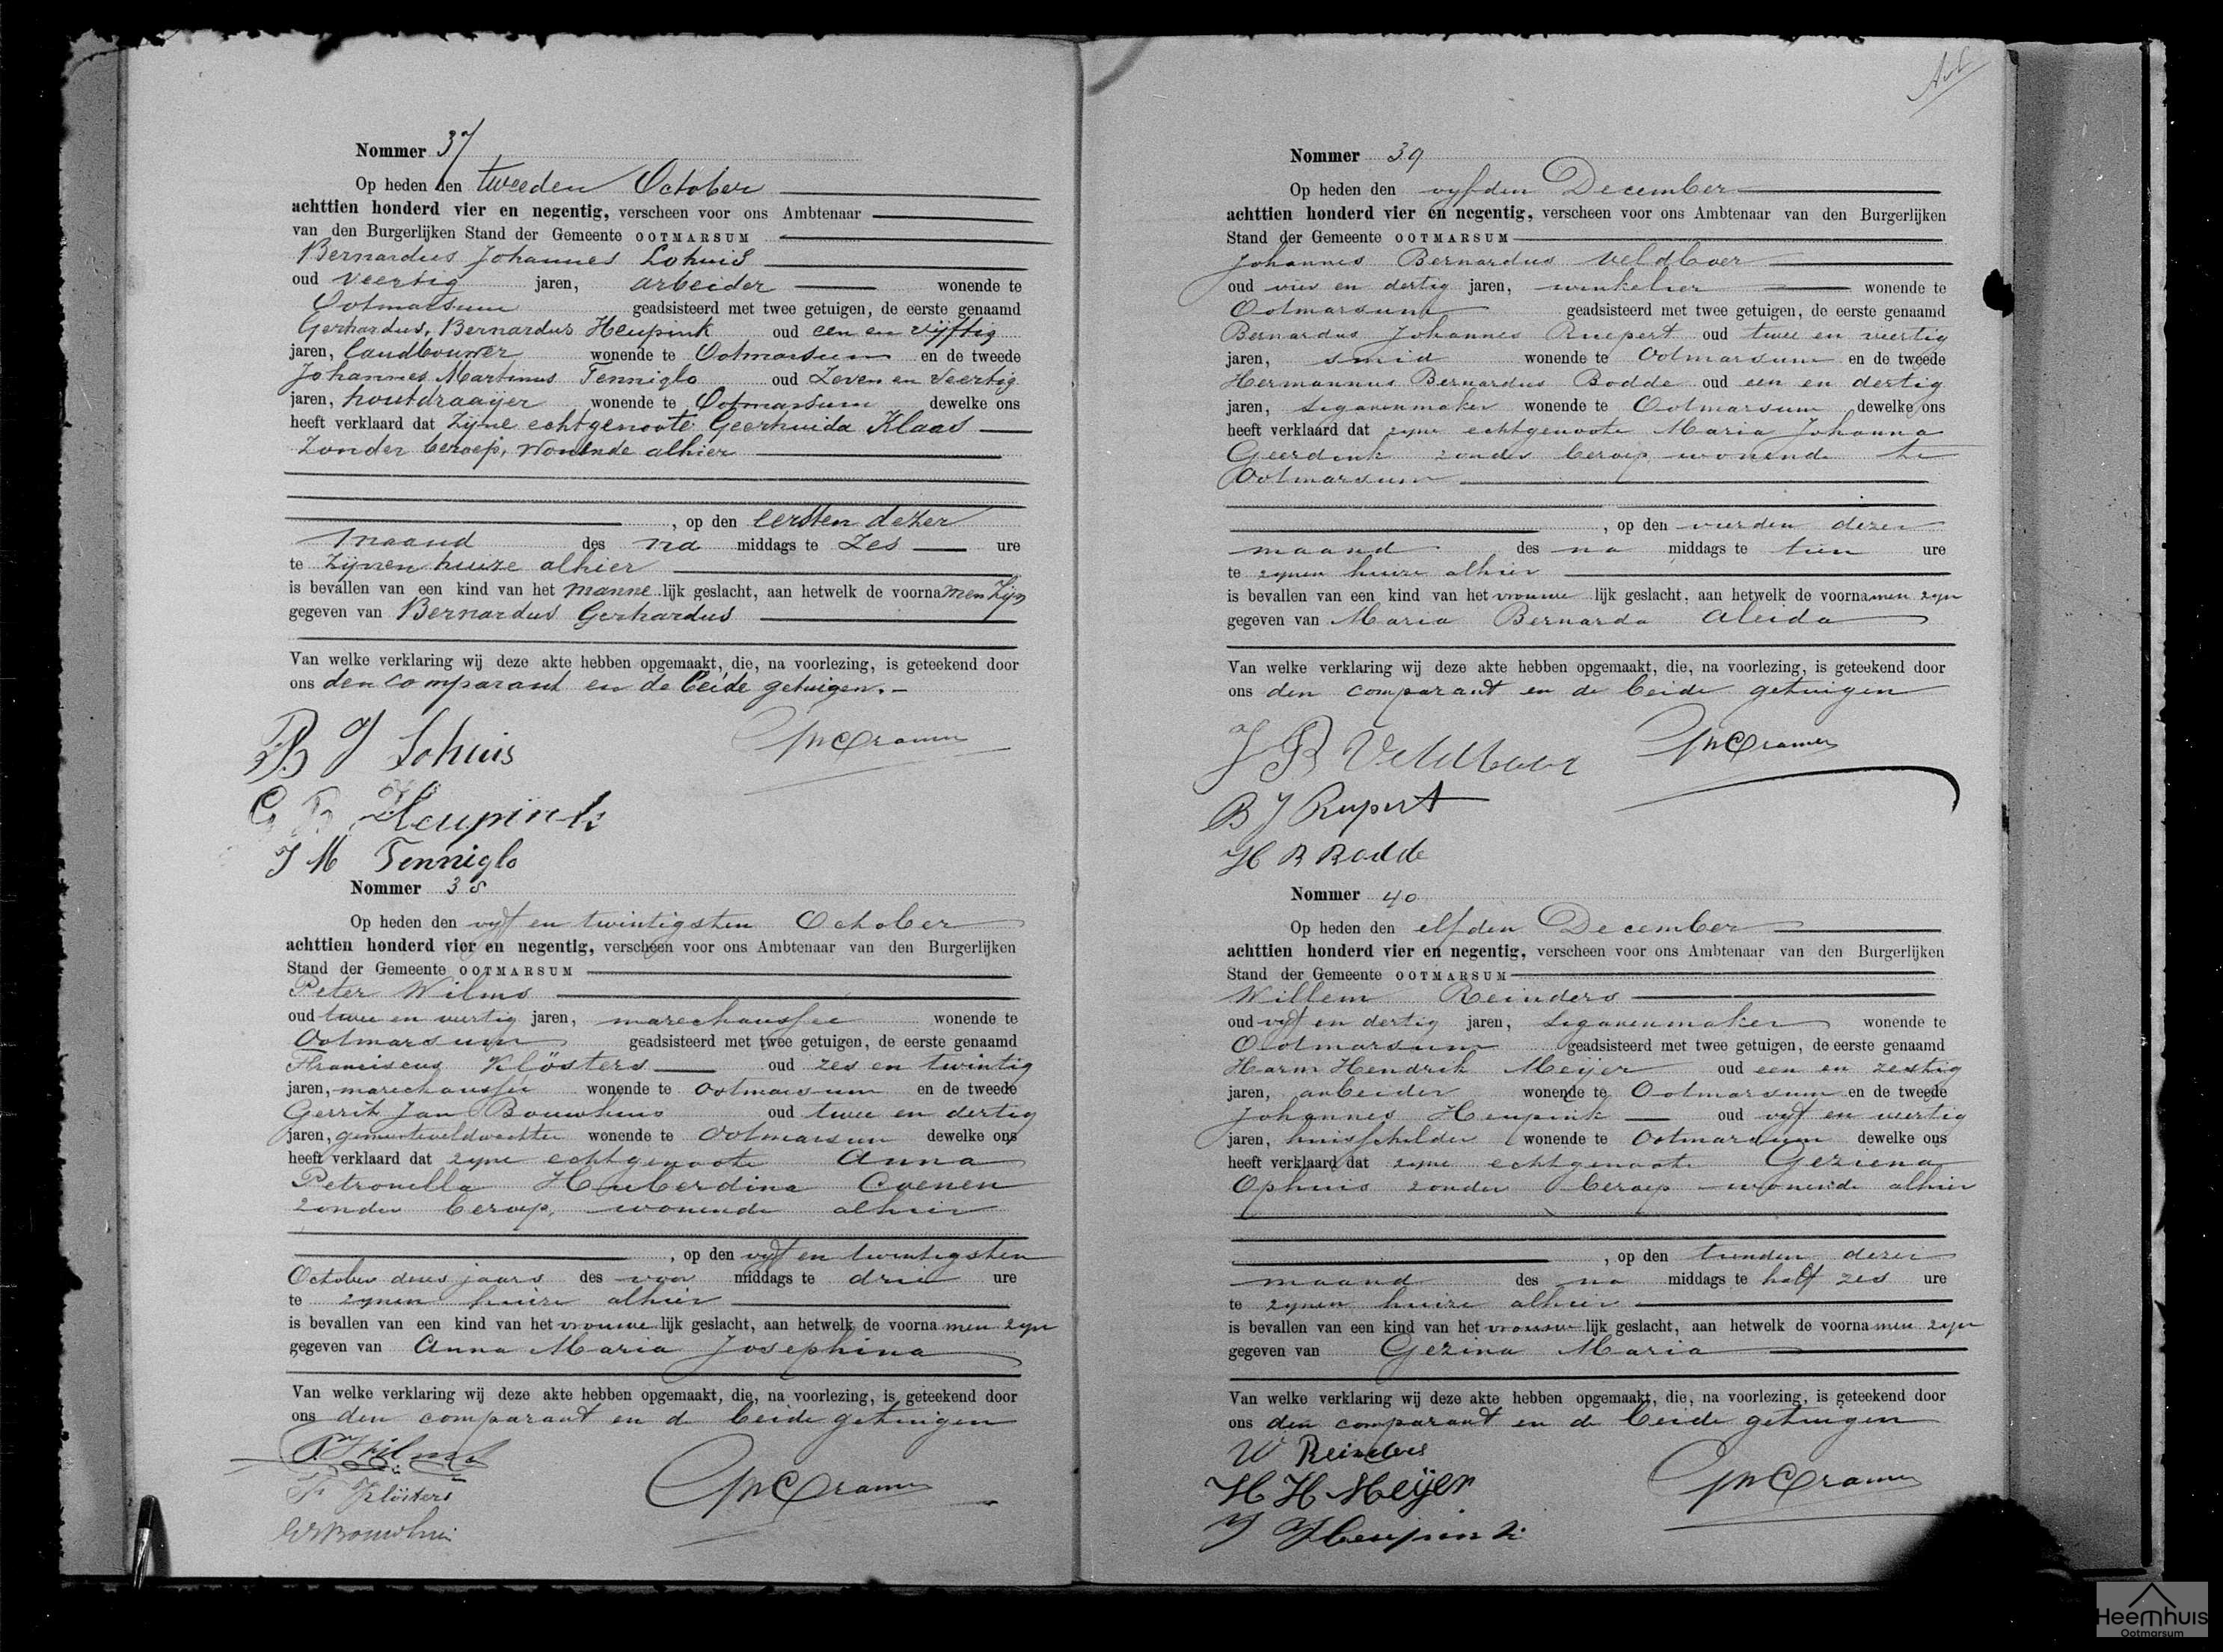 Nommer 37
Op heden den tweeden October
achttien honderd vier en negentig, verscheen voor ons Ambtenaar
van den Burgerlijken Stand der Gemeente OOTMARSUM
Bernardus Johannes Lohuis
oud veertig jaren, arbeider wonende te
Ootmarsum geadsisteerd met twee getuigen, de eerste genaamd
Gerhardus, Bernardus Heupink oud een en vijftig
jaren, landbouwer wonende te Ootmarsum en de tweede
Johannes Martinus Tenniglo oud Zeven en Veertig
jaren, houtdraayer wonende te Ootmarsum dewelke ons
heeft verklaard dat zijne echtgenoote Geerhuida Klaas
Zonder beroep, wonende alhier
, op den eersten dezer
maand des na middags te Zes ure
te Zijnen huize alhier
is bevallen van een kind van het manne lijk geslacht, aan hetwelk de voornamen Zijn
gegeven van Bernardus Gerhardus
Van welke verklaring wij deze akte hebben opgemaakt, die, na voorlezing, is geteekend door
ons den comparant en de beide getuigen.
B J Lohuis
Cramer
G B Heupink
J M Tenniglo
Nommer 38
Op heden den vyf en twintigsten October
achttien honderd vier en negentig, verscheen voor ons Ambtenaar van den Burgerlijken
Stand der Gemeente OOTMARSUM
Peter Wilms
oud twee en veertig jaren, marechaussee wonende te
Ootmarsum geadsisteerd met twee getuigen, de eerste genaamd
Franciscus Klösters oud zes en twintig
jaren, marechaussee wonende te Ootmarsum en de tweede
Gerrit Jan Bouwhuis oud twee en dertig
jaren, gemeenteveldwachter wonende te Ootmarsum dewelke ons
heeft verklaard dat zyne echtgenoote Anna
Petronella Huberdina Coenen
zonder beroep, wonende alhier
, op den vyf en twintigsten
October dezes jaars des voor middags te drie ure
te zynen huize alhier
is bevallen van een kind van het vrouwe lijk geslacht, aan hetwelk de voorna men zyn
gegeven van Anna Maria Josephina
Van welke verklaring wij deze akte hebben opgemaakt, die, na voorlezing, is geteekend door
ons den comparant en de beide getuigen
P. Wilms
F Klösters
Cramer
GJ Bouwhuis
Nommer 39
Op heden den vyfden December
achttien honderd vier en negentig, verscheen voor ons Ambtenaar van den Burgerlijken
Stand der Gemeente OOTMARSUM
Johannes Bernardus Veldboer
oud vier en dertig jaren, winkelier wonende te
Ootmarsum geadsisteerd met twee getuigen, de eerste genaamd
Bernardus Johannes Ruepert oud twee en veertig
jaren, smid wonende te Ootmarsum en de tweede
Hermannus Bernardus Bodde oud een en dertig
jaren, sigarenmaker wonende te Ootmarsum dewelke ons
heeft verklaard dat zyne echtgenoote Maria Johanna
Geerdink zonder beroep wonende te
Ootmarsum
, op den vierden dezer
maand des na middags te tien ure
te zynen huize alhier
is bevallen van een kind van het vrouwe lijk geslacht, aan hetwelk de voornamen zyn
gegeven van Maria Bernarda Aleida
Van welke verklaring wij deze akte hebben opgemaakt, die, na voorlezing, is geteekend door
ons den comparant en de beide getuigen
J B Veldboer
Cramer
B J Rupert
H B Bodde
Nommer 40
Op heden den elfden December
achttien honderd vier en negentig, verscheen voor ons Ambtenaar van den Burgerlijken
Stand der Gemeente OOTMARSUM
Willem Reinders
oud vyf en dertig jaren, sigarenmaker wonende te
Ootmarsum geadsisteerd met twee getuigen, de eerste genaamd
Harm Hendrik Meijer oud een en zestig
jaren, arbeider wonende te Ootmarsum en de tweede
Johannes Heupink oud vyf en veertig
jaren, huisschilder wonende te Ootmarsum dewelke ons
heeft verklaard dat zyne echtgenoote Geziena
Ophuis zonder beroep wonende alhier
, op den tienden dezer
maand des na middags te half zes ure
te zynen huize alhier
is bevallen van een kind van het vrouwe lijk geslacht, aan hetwelk de voornamen zyn
gegeven van Gezina Maria
Van welke verklaring wij deze akte hebben opgemaakt, die, na voorlezing, is geteekend door
ons den comparant en de beide getuigen
W Reinders
H H Meijer
Cramer
J Heupink
Heemhuis
Ootmarsum